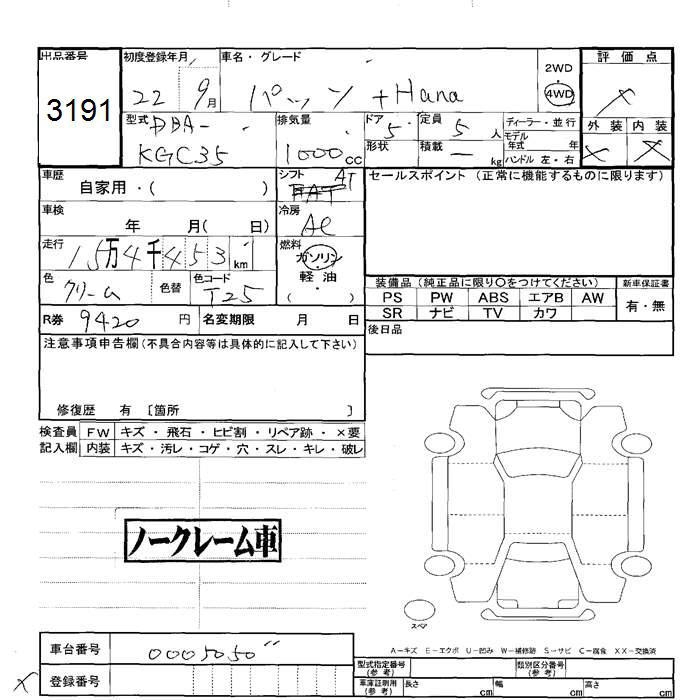 出品番号 初度登録年月 車名・グレード 評価点
3191 22 9月 パッソ +Hana 2WD・4WD ×
型式 DBA- KGC35 排気量 1000cc ドア 5 定員 5人 ディーラー・並行 外装 内装
形状 積載 ー kg モデル年式 年 × ×
ハンドル 左・右
車歴 自家用・( ) シフト FAT AT セールスポイント (正常に機能するものに限ります)
車検 年 月( 日) 冷房 AC
走行 15万4千453km 燃料 ガソリン
軽油
( )
色 クリーム 色替 色コード T25
装備品 (純正品に限り〇をつけてください) 新車保証書
PS PW ABS エアB AW 有・無
SR ナビ TV カワ
R券 9420円 名変期限 月 日
後日品
注意事項申告欄(不具合内容等は具体的に記入して下さい)
修復歴 有 〔箇所 〕
検査員 FW キズ・飛石・ヒビ割・リペア跡・×要
記入欄 内装 キズ・汚レ・コゲ・穴・スレ・キレ・破レ
ノークレーム車
スペア
A-キズ E-エクボ U-凹み W-補修跡 S-サビ C-腐食 XX-交換済
車台番号 0005050
登録番号
型式指定番号(参考) 類別区分番号(参考)
車庫証明用(参考) 長さ cm 幅 cm 高さ cm
×